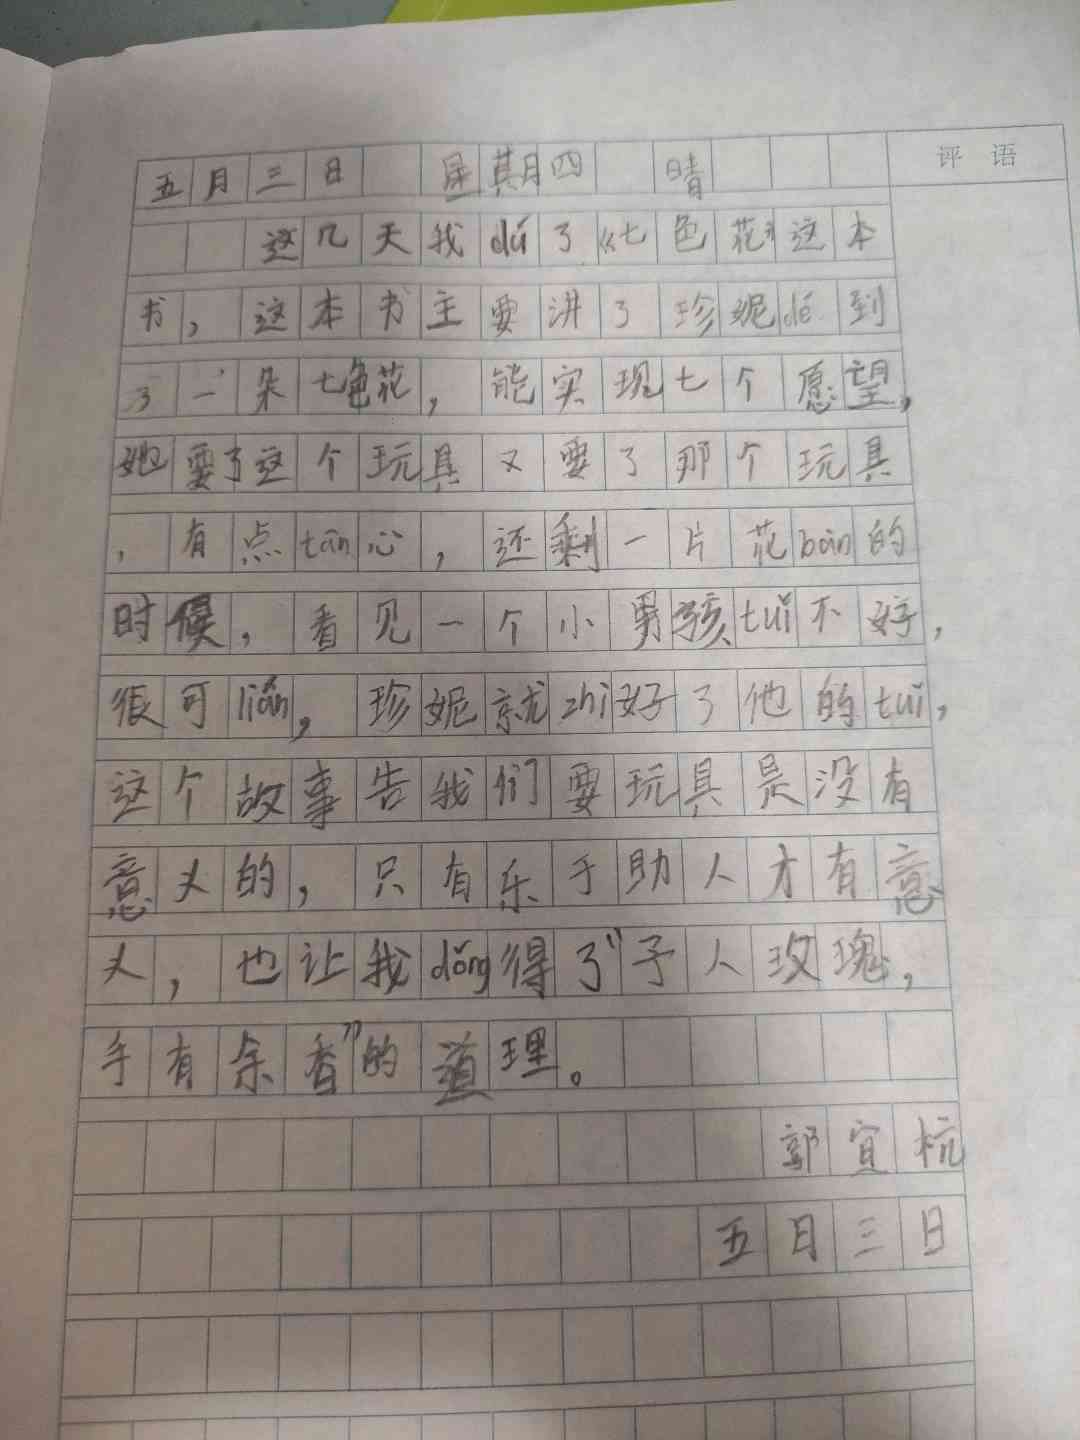 评 语
五月三日 星期四 晴
这几天我dú了《七色花》这本
书，这本书主要讲了珍妮dé到
了一朵七色花，能实现七个愿望，
她要了这个玩具又要了那个玩具
，有点tān心，还剩一片花bàn的
时候，看见一个小男孩tuǐ不好，
很可lián，珍妮就zhì好了他的tuǐ，
这个故事告我们要玩具是没有
意义的，只有乐于助人才有意
义，也让我dǒng得了“予人玫瑰，
手有余香”的道理。
郭宜杭
五月三日